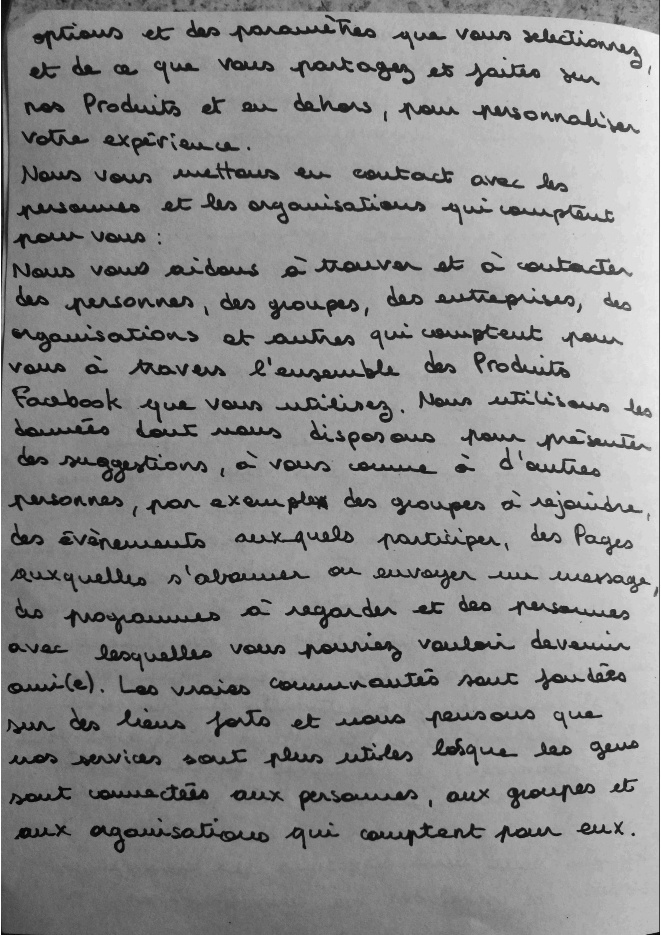 options et des paramètres que vous selectionnez,
et de ce que vous partagez et faites sur
nos Produits et en dehors, pour personnaliser
votre expérience.
Nous vous mettons en contact avec les
personnes et les organisations qui comptent
pour vous :
Nous vous aidons à trouver et à contacter
des personnes, des groupes, des entreprises, des
organisations et autres qui comptent pour
vous à travers l'ensemble des Produits
Facebook que vous utilisez. Nous utilisons les
données dont nous disposons pour présenter
des suggestions, à vous comme à d'autres
personnes, par exemple des groupes à rejoindre,
des évènements auxquels participer, des Pages
auxquelles s'abonner ou envoyer un message,
des programmes à regarder et des personnes
avec lesquelles vous pourriez vouloir devenir
ami(e). Les vraies communautés sont fondées
sur des liens forts et nous pensons que
nos services sont plus utiles lorsque les gens
sont connectées aux personnes, aux groupes et
aux organisations qui comptent pour eux.